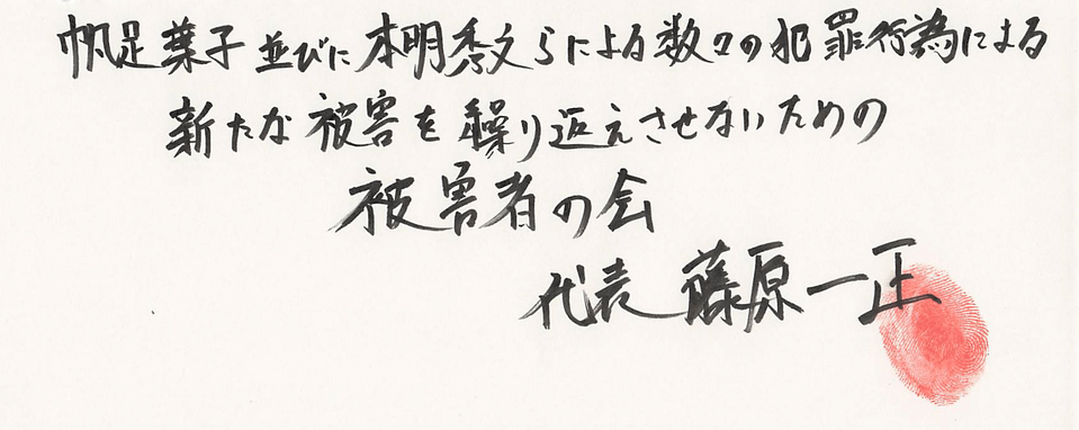 帆足葉子並びに本明秀文らによる数々の犯罪行為による
新たな被害を繰り返えさせないための
被害者の会
代表 藤原一正